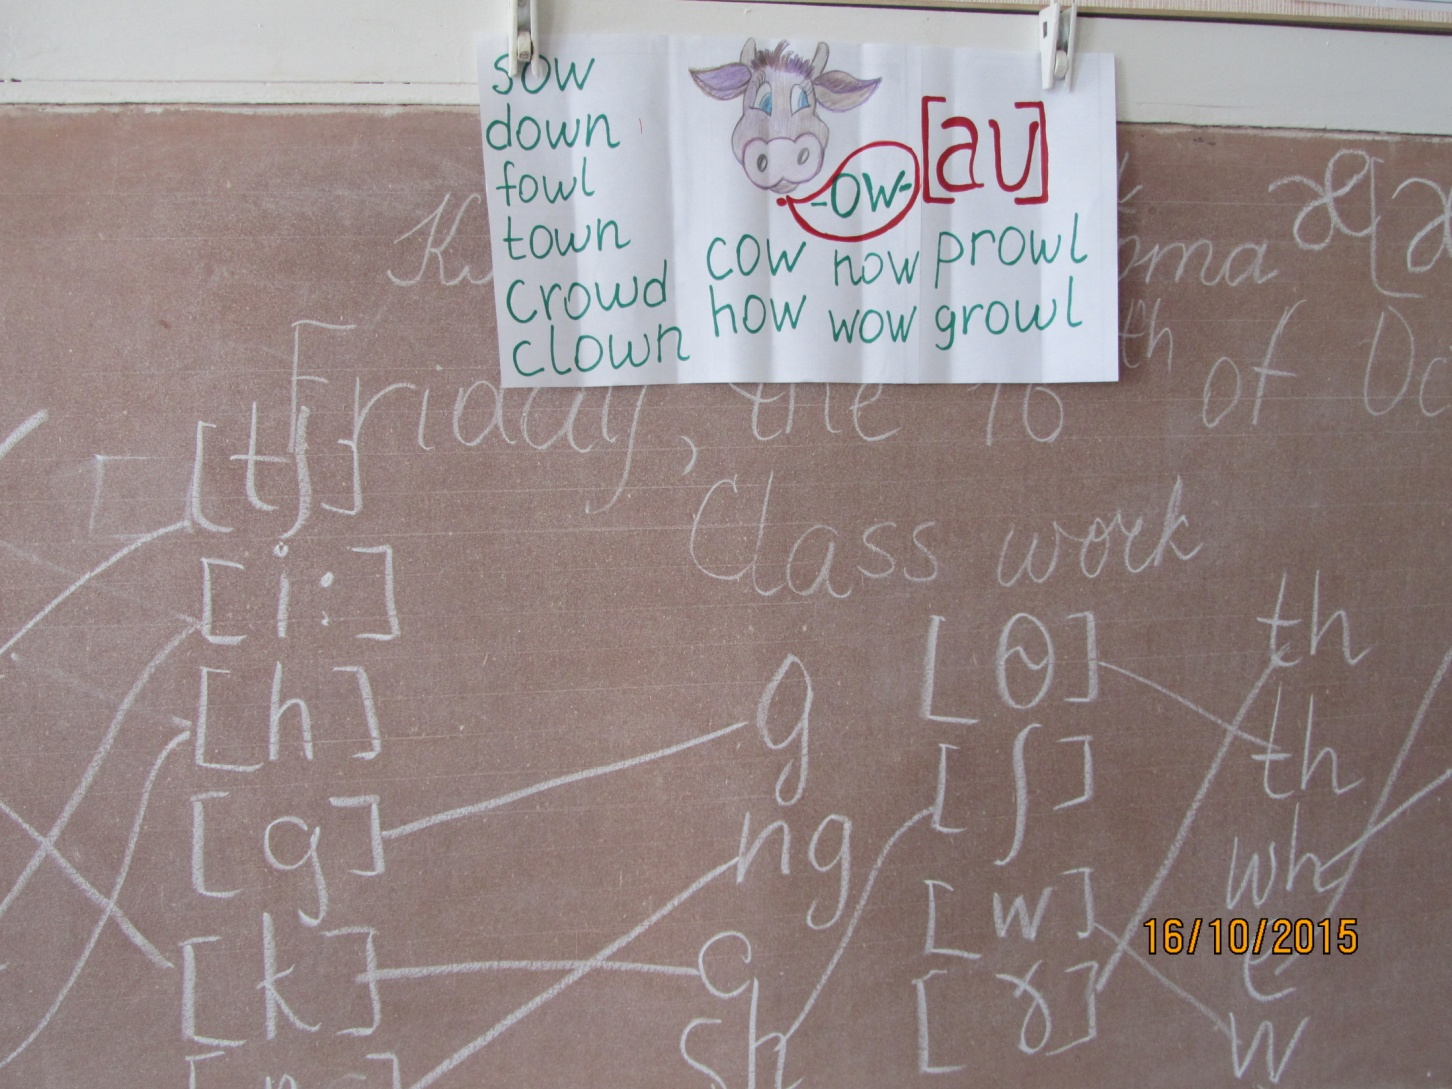 sow
down
fowl
town
crowd
clown
-ow- [aʊ]
cow now prowl
how wow growl
Friday, the 16th of Oc
Class work
[tʃ]
[i:]
[h]
[g]
[k]
g
ng
c
sh
[θ]
[ʃ]
[w]
[ɤ]
th
th
wh
e
w
16/10/2015